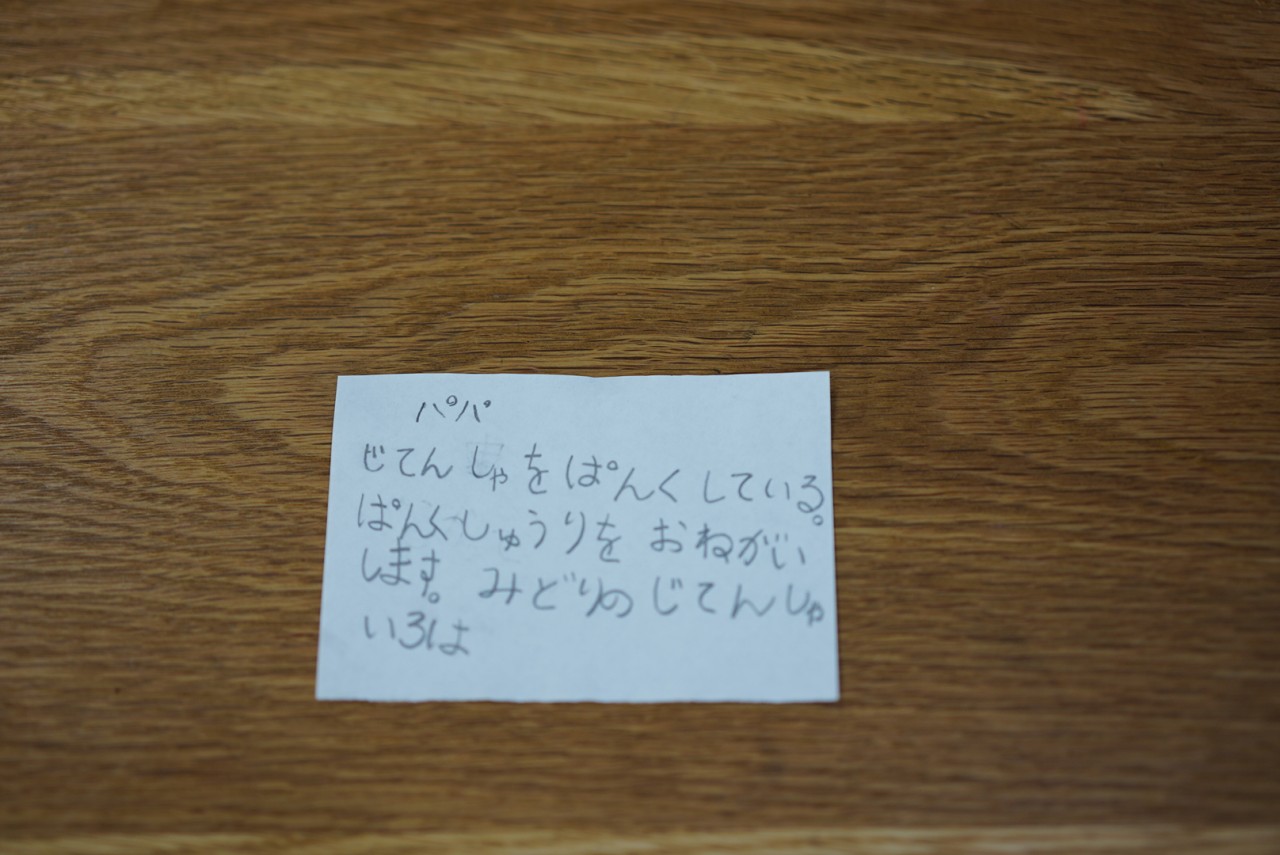 パパ
じてんしゃをぱんくしている。
ぱんくしゅうりを おねがい
します。 みどりの じてんしゃ
いろは